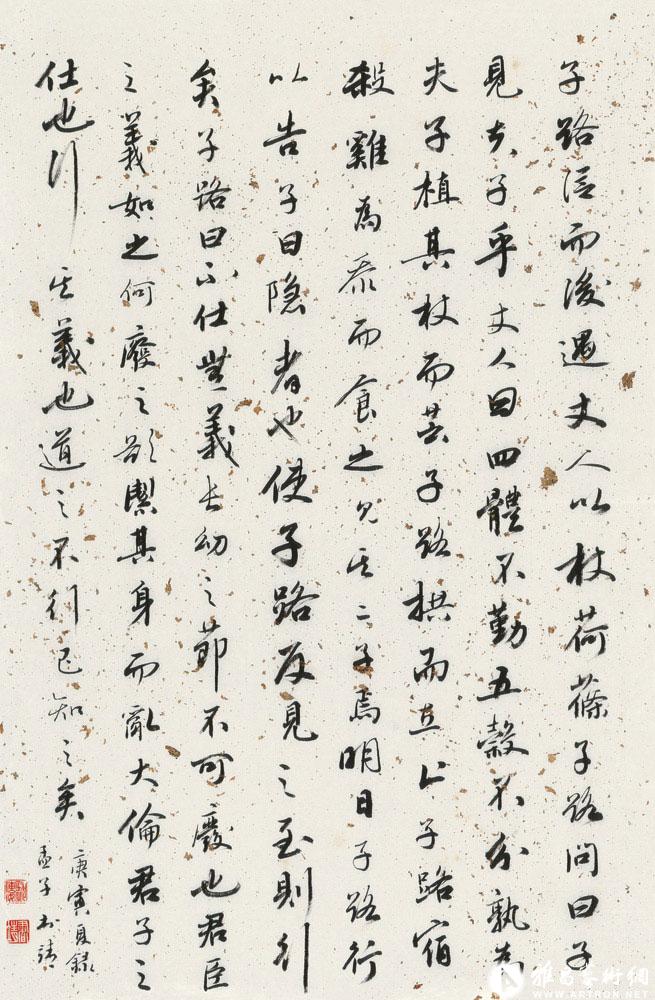 子路從而後遇丈人以杖荷蓧子路問曰子
見夫子乎丈人曰四體不勤五穀不分孰為
夫子植其杖而芸子路拱而立止子路宿
殺雞為黍而食之見其二子焉明日子路行
以告子曰隐者也使子路反見之至則行
矣子路曰不仕無義長幼之節不可廢也君臣
之義如之何廢之欲潔其身而亂大倫君子之
仕也行其義也道之不行已知之矣
庚寅夏錄
孟子
雅昌藝術網
WWW.ARTRON.NET